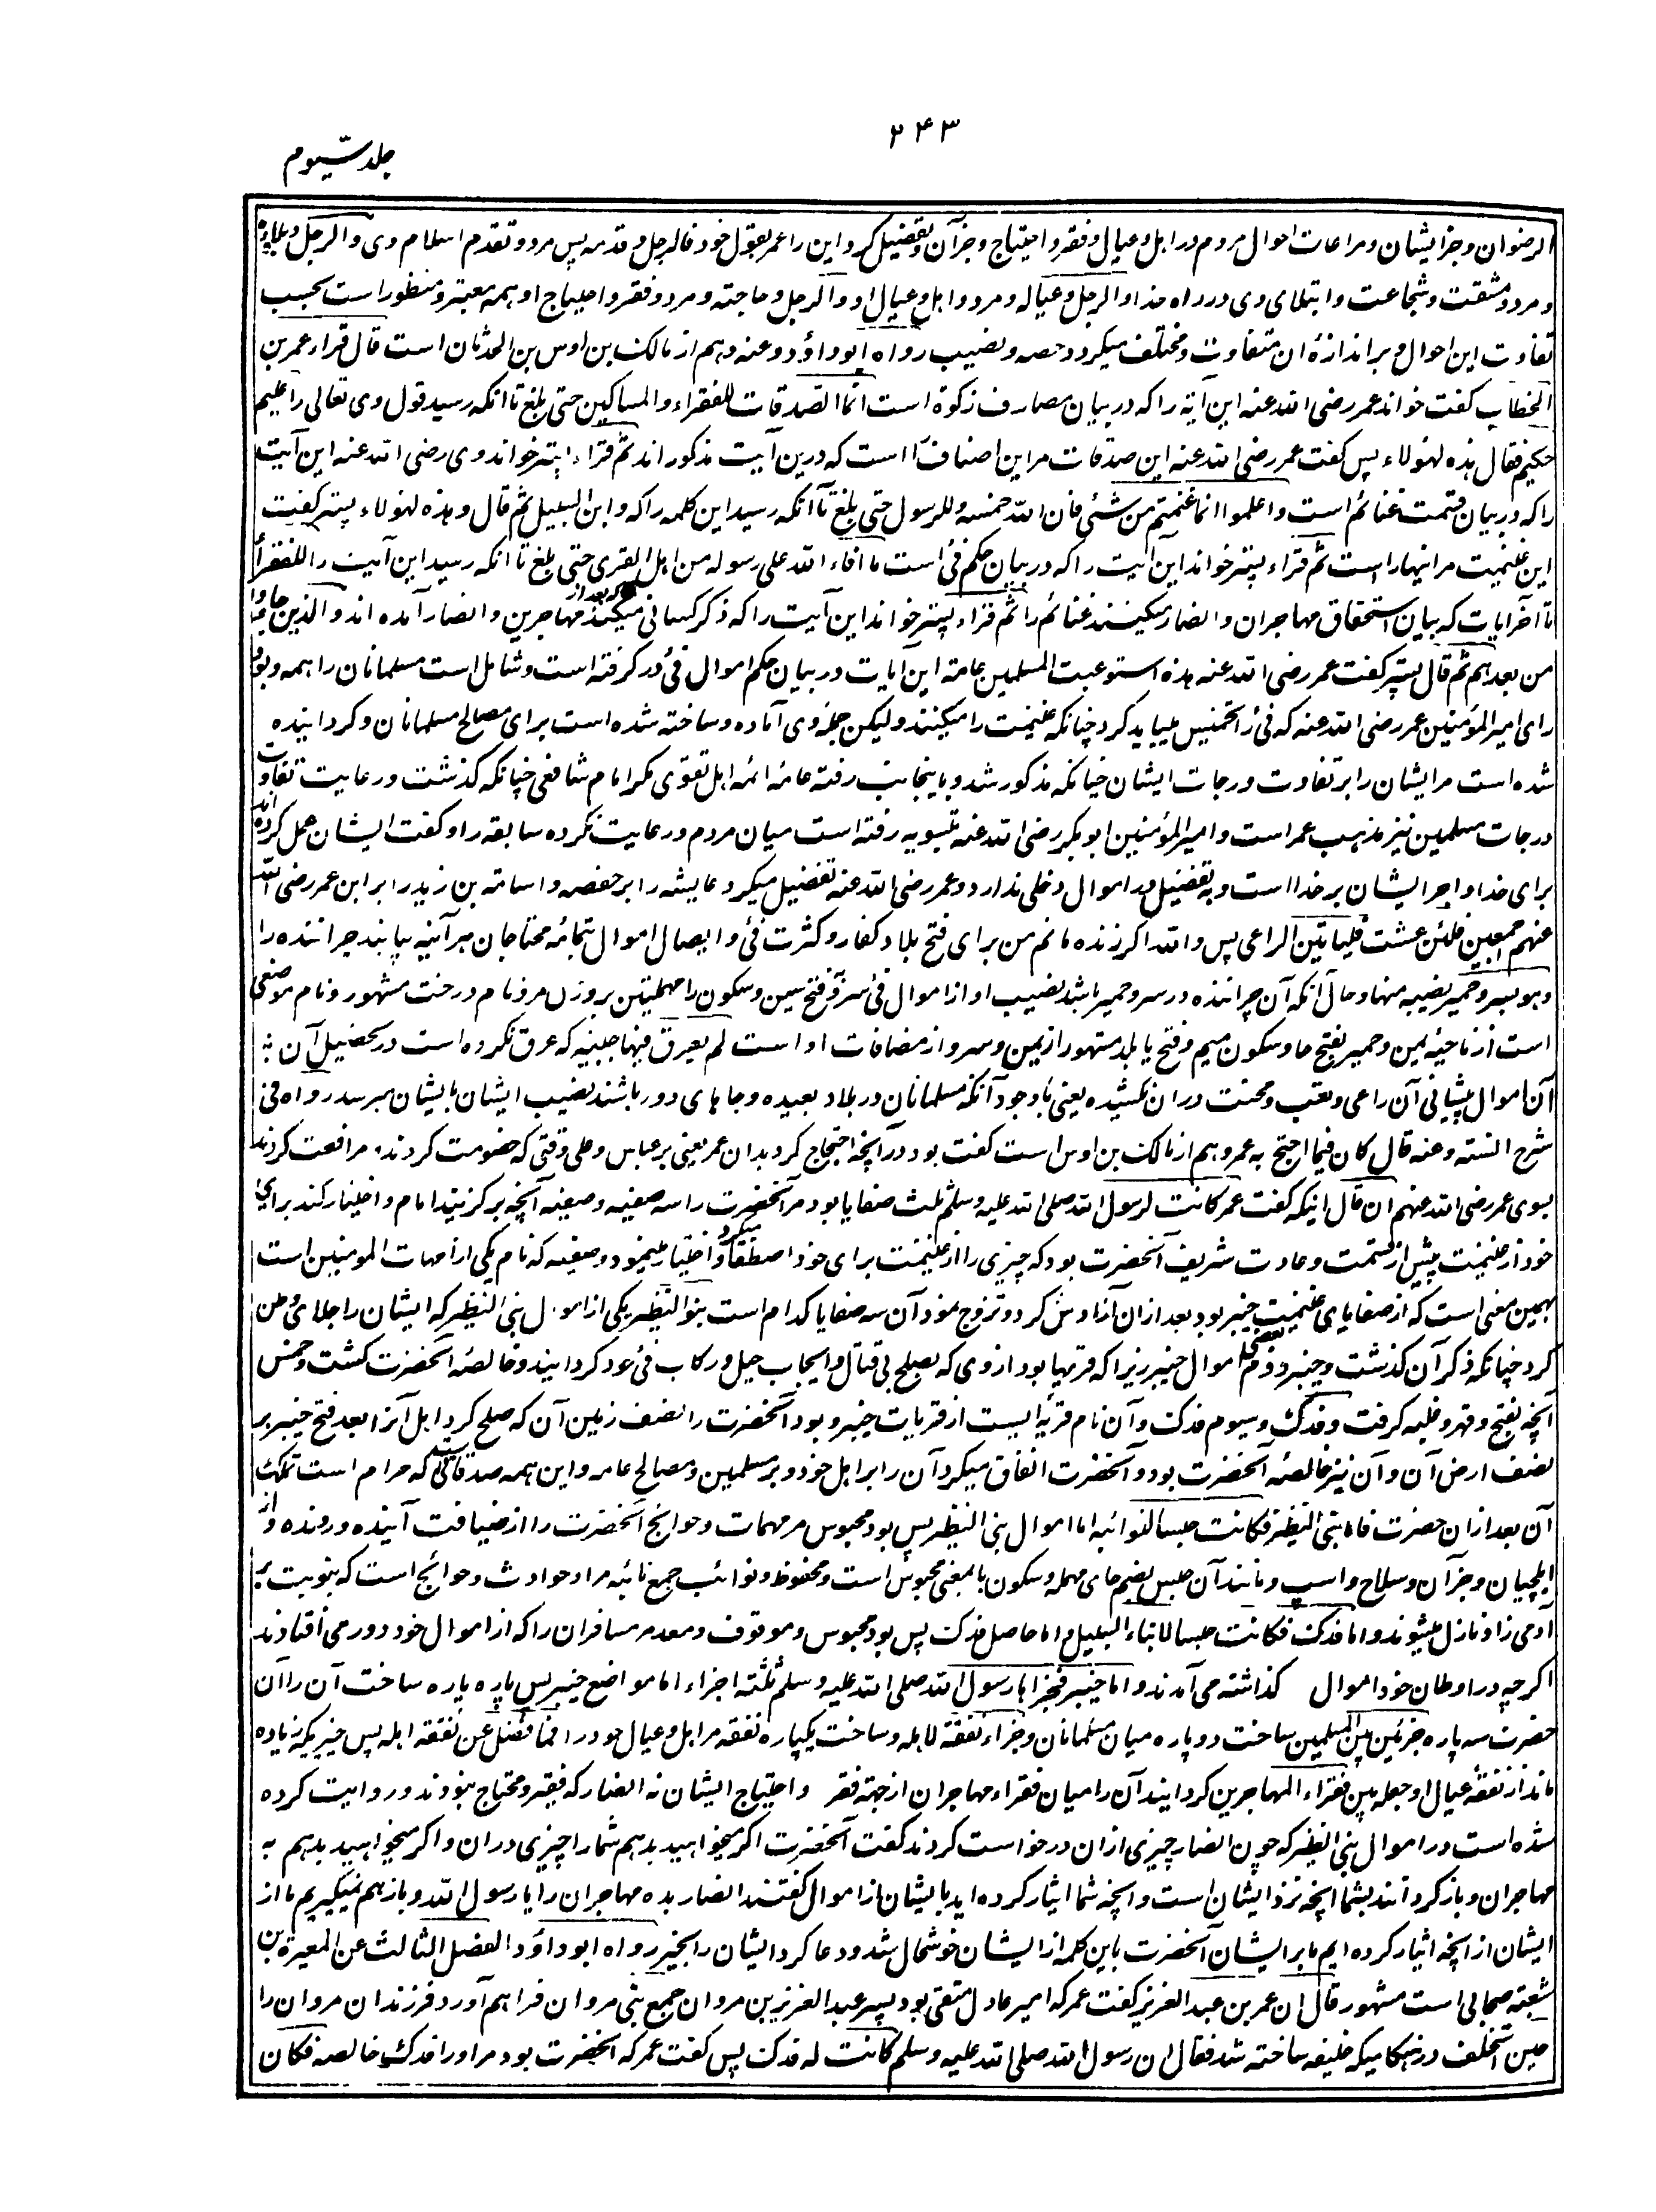 ۲۴۳
جلد سیوم
الرضوان و جز ایشان و مراعات احوال مردم در اهل و عیال و فقر و احتیاج و جز آن و تفضیل کرد و این را عمر بقول خود فالرجل و قدمه پس مرد و تقدم اسلام وی و الرجل و بلاؤه
و مرد و مشقت و شجاعت و ابتلای وی در راه خدا و الرجل و عیاله و مرد و اهل و عیال او و الرجل و حاجته و مرد و فقر و احتیاج او همه معتبر و منظور است بحسب
تفاوت این احوال و بر اندازهٔ ان متفاوت و مختلف میکردد حصه و نصیب رواه ابو داؤد و عنه و هم از مالک بن اوس بن الحدثان است قال قراء عمر بن
الخطاب کفت خواند عمر رضی الله عنه این آیة را که در بیان مصارف زکوة است انما الصدقات للفقراء و المساکین حتی بلغ تا انکه رسید قول وی تعالی را علیم
حکیم فقال هذه لهؤلاء پس کفت عمر رضی الله عنه این صدقات مر این اصناف را است که درین آیت مذکور اند ثم قراء پستر خواند وی رضی الله عنه این آیت
را که در بیان قسمت غنائم است و اعلموا انما غنمتم من شئی فان لله خمسه و للرسول حتی بلغ تا آنکه رسید این کلمه را که و ابن السبیل ثم قال و هذه لهؤلاء پستر کفت
این غنیمت مر اینها راست ثم قراء پستر خواند این آیت را که در بیان حکم فئ است ما افاء الله علی رسوله من اهل القری حتی بلغ تا انکه رسید این آیت را للفقرأ
تا آخر ایات که بیان استحقاق مهاجران و انصار میکنند غنائم را ثم قراء پستر خواند این آیت را که ذکر کسانی میکند که بعد از مهاجرین و انصار آمده اند و الذین جاءوا
من بعدهم ثم قال پستر کفت عمر رضی الله عنه هذه استوعبت المسلمین عامة این ایات در بیان حکم اموال فئ در کرفته است و شامل است مسلمانان را همه و بود
رای امیر المؤمنین عمر رضی الله عنه که فئ را تخمیس نمیباید کرد چنانکه غنیمت را میکنند و لیکن جملهٔ وی آماده و ساخته شده است برای مصالح مسلمانان و کردانیده
شده است مر ایشان را بر تفاوت درجات ایشان چنانکه مذکور شد و باینجانب رفته عامهٔ ائمه اهل تقوی مکر امام شافعی چنانکه کذشت و رعایت تفاوت
درجات مسلمین نیز مذهب عمر است و امیر المؤمنین ابو بکر رضی الله عنه بتسویه رفته است میان مردم و رعایت نکرده سابقه را و کفت ایشان عمل کرده اند
برای خدا و اجر ایشان بر خدا است و به تفضیل در اموال دخلی ندارد و عمر رضی الله عنه تفضیل میکرد عایشه را بر حفصه و اسامة بن زید را بر ابن عمر رضی الله
عنهم اجمعین فلئن عشت فلیاتین الراعی پس و الله اکر زنده مانم من برای فتح بلاد کفار و کثرت فئ و ایصال اموال بتمامهٔ محتاجان هر آئینه بیابند چراننده را
و هو بسرو حمیر نصیبه منها و حال آنکه آن چراننده در سرو حمیر باشد نصیب او از اموال فئ سرو بفتح سین و سکون را مهملتین بر وزن مرو نام درخت مشهور و نام موضعی
است از ناحیهٔ یمن و حمیر بفتح حا و سکون میم و فتح یا بلد مشهور از یمن و سرو از مضافات او است لم یعرق فیها جبینه که عرق نکرده است در تحصیل آن
آن اموال پیشانی آن راعی و تعب و محنت در ان نکشیده یعنی با وجود آنکه مسلمانان در بلاد بعیده و جاهای دور باشند نصیب ایشان بایشان میرسد رواه فی
شرح السنته و عنه قال کان فیما احتج به عمر و هم از مالک بن اوس است کفت بود در آنچه احتجاج کرد بدان عمر یعنی بر عباس و علی وقتی که خصومت کردند و مرافعت کردند
بسوی عمر رضی الله عنهم ان قال اینکه کفت عمر کانت لرسول الله صلی الله علیه و سلم ثلث صفایا بود مر آنحضرت را سه صفیه و صفیه آنچه بر کزیند امام و اختیار کند برای
خود از غنیمت پیش از قسمت و عادت شریف آنحضرت بود که چیزی را از غنیمت برای خود اصطفا میکرد و اختیار مینمود و صفیه که نام یکی از امهات المومنین است
بهمین معنی است که از صفایای غنیمت خیبر بود بعد از ان آزادش کرد و تزوج نمود آن سه صفایا کدام است بنو النظیر یکی از اموال بنی النظیر که ایشان را جلای وطن
کرد چنانکه ذکر آن کذشت و خیبر و دوم بعضی اموال خیبر زیرا که قریها بود از وی که بصلح بی قتال و ایجاب خیل و رکاب فئ عود کردانیند و خالصهٔ آنحضرت کشت و خمس
آنچه بفتح و قهر و غلبه کرفت و فدک و سیوم فدک و آن نام قریهٔ ایست از قریات خیبر و بود آنحضرت را نصف زمین آن که صلح کرد اهل آنرا بعد فتح خیبر بر
نصف ارض آن و آن نیز خالصهٔ آنحضرت بود و آنحضرت انفاق میکرد آن را بر اهل خود و بر مسلمین و مصالح عامه و این همه صدقاتی که حرام است تملک
آن بعد ازان حضرت فاما بنی النظیر فکانت حبسا لنوائبه اما اموال بنی النظیر پس بود محبوس مر مهمات و حوایج آنحضرت را از ضیافت آینده و رونده و از
ایلچیان و جز آن و سلاح و اسپ و مانند آن حبس بضم حای مهمله و سکون با بمعنی محبوس است و محفوظ و نوائب جمع نائبه مراد حوادث و حوائج است که بنوبت بر
آدمی زاد نازل میشوند و اما فدک فکانت حبسا لابناء السبیل و اما حاصل فدک پس بود محبوس و موقوف و معد مر مسافران را که از اموال خود دور می افتادند
اکر چه در اوطان خود اموال کذاشته می آمدند و اما خیبر فجزاها رسول الله صلی الله علیه و سلم ثلثة اجزاء اما مواضع خیبر پس پاره پاره ساخت آن را آن
حضرت سه پاره جزئین بین المسلمین ساخت دو پاره میان مسلمانان و جزاء نفقة لاهله و ساخت یکپاره نفقه مر اهل و عیال خود را فما فضل عن نفقة اهله پس چیزیکه زیاده
ماند از نفقهٔ عیال او جعله بین فقراء المهاجرین کردانیند آن را میان فقراء مهاجران از جهة فقر و احتیاج ایشان نه انصار که فقیر و محتاج نبودند و روایت کرده
شده است در اموال بنی النظیر که چون انصار چیزی ازان درخواست کردند کفت آنحضرت اکر میخواهید بدهم شما را چیزی دران و اکر میخواهید بدهم به
مهاجران و باز کردانند بشما انچه نزد ایشان است و انچه شما ایثار کرده اید بایشان از اموال کفتند انصار بده مهاجران را یا رسول الله و باز هم نمیکیریم ما از
ایشان از انچه ایثار کرده ایم ما بر ایشان آنحضرت باین کلمه از ایشان خوشحال شد و دعا کرد ایشان را بخیر رواه ابو داؤد الفصل الثالث عن المغیرة بن
شعبته صحابی است مشهور قال ان عمر بن عبد العزیز کفت عمر که امیر عادل متقی بود پسر عبد العزیز بن مروان جمع بنی مروان فراهم آورد فرزندان مروان را
حین استخلف در هنکامیکه خلیفه ساخته شد فقال ان رسول الله صلی الله علیه و سلم کانت له فدک پس کفت عمر که انحضرت بود مر او را فدک خالصه فکان